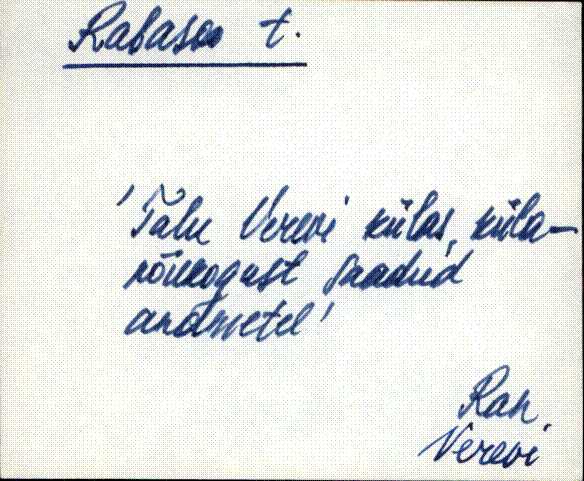 Rabasoo t.
'Talu Verevi külas, küla-
nõukogust saadud
andmetel'
Ran
Verevi